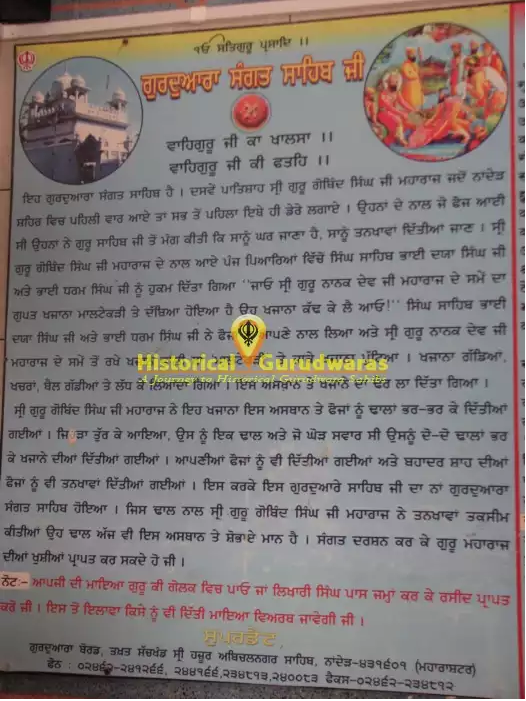 ੧ਓ ਸਤਿਗੁਰ ਪ੍ਰਸਾਦਿ ।।
ਗੁਰਦੁਆਰਾ ਸੰਗਤ ਸਾਹਿਬ ਜੀ
ਵਾਹਿਗੁਰੂ ਜੀ ਕਾ ਖਾਲਸਾ ।।
ਵਾਹਿਗੁਰੂ ਜੀ ਕੀ ਫਤਹਿ ।।
ਇਹ ਗੁਰਦੁਆਰਾ ਸੰਗਤ ਸਾਹਿਬ ਹੈ । ਦਸਵੇਂ ਪਾਤਿਸ਼ਾਹ ਸ੍ਰੀ ਗੁਰੂ ਗੋਬਿੰਦ ਸਿੰਘ ਜੀ ਮਹਾਰਾਜ ਜਦੋਂ ਨਾਂਦੇੜ
ਸ਼ਹਿਰ ਵਿਚ ਪਹਿਲੀ ਵਾਰ ਆਏ ਤਾਂ ਸਭ ਤੋਂ ਪਹਿਲਾ ਇਥੇ ਹੀ ਡੇਰੇ ਲਗਾਏ । ਉਹਨਾਂ ਦੇ ਨਾਲ ਜੋ ਫੌਜ ਆਈ
ਸੀ ਉਹਨਾਂ ਨੇ ਗੁਰੂ ਸਾਹਿਬ ਜੀ ਤੋਂ ਮੰਗ ਕੀਤੀ ਕਿ ਸਾਨੂੰ ਘਰ ਜਾਣਾ ਹੈ, ਸਾਨੂੰ ਤਨਖਾਵਾਂ ਦਿੱਤੀਆਂ ਜਾਣ । ਸ੍ਰੀ
ਗੁਰੂ ਗੋਬਿੰਦ ਸਿੰਘ ਜੀ ਮਹਾਰਾਜ ਦੇ ਨਾਲ ਆਏ ਪੰਜ ਪਿਆਰਿਆਂ ਵਿੱਚੋਂ ਸਿੰਘ ਸਾਹਿਬ ਭਾਈ ਦਯਾ ਸਿੰਘ ਜੀ
ਅਤੇ ਭਾਈ ਧਰਮ ਸਿੰਘ ਜੀ ਨੂੰ ਹੁਕਮ ਦਿੱਤਾ ਗਿਆ "ਜਾਓ ਸ੍ਰੀ ਗੁਰੂ ਨਾਨਕ ਦੇਵ ਜੀ ਮਹਾਰਾਜ ਦੇ ਸਮੇਂ ਦਾ
ਗੁਪਤ ਖਜਾਨਾ ਮਾਲਟੇਕੜੀ ਤੇ ਦੱਬਿਆ ਹੋਇਆ ਹੈ ਉਹ ਖਜਾਨਾ ਕੱਢ ਕੇ ਲੈ ਆਓ!" ਸਿੰਘ ਸਾਹਿਬ ਭਾਈ
ਦਯਾ ਸਿੰਘ ਜੀ ਅਤੇ ਭਾਈ ਧਰਮ ਸਿੰਘ ਜੀ ਨੇ ਫੌਜ ਆਪਣੇ ਨਾਲ ਲਿਆ ਅਤੇ ਸ੍ਰੀ ਗੁਰੂ ਨਾਨਕ ਦੇਵ ਜੀ
ਮਹਾਰਾਜ ਦੇ ਸਮੇਂ ਤੋਂ ਰਖੇ ਖਜਾਨਾ । ਖਜਾਨਾ ਗੱਡਿਆਂ,
Historical Gurudwaras
A Journey to Historical Gurudwara Sahibs
ਖਚਰਾਂ, ਬੈਲ ਗੱਡੀਆਂ ਤੇ ਲੱਧ ਕੇ ਲਿਆਂਦਾ ਗਿਆ । ਇਸ ਅਸਥਾਨ ਤੇ ਖਜਾਨੇ ਦਾ ਢੇਰ ਲਾ ਦਿੱਤਾ ਗਿਆ ।
ਸ੍ਰੀ ਗੁਰੂ ਗੋਬਿੰਦ ਸਿੰਘ ਜੀ ਮਹਾਰਾਜ ਨੇ ਇਹ ਖਜਾਨਾ ਇਸ ਅਸਥਾਨ ਤੇ ਫੌਜਾਂ ਨੂੰ ਢਾਲਾਂ ਭਰ-ਭਰ ਕੇ ਦਿੱਤੀਆਂ
ਗਈਆਂ । ਜਿਹੜਾ ਤੁੱਰ ਕੇ ਆਇਆ, ਉਸ ਨੂੰ ਇਕ ਢਾਲ ਅਤੇ ਜੋ ਘੋੜ ਸਵਾਰ ਸੀ ਉਸਨੂੰ ਦੋ-ਦੋ ਢਾਲਾਂ ਭਰ
ਕੇ ਖਜਾਨੇ ਦੀਆਂ ਦਿੱਤੀਆਂ ਗਈਆਂ । ਆਪਣੀਆਂ ਫੌਜਾਂ ਨੂੰ ਵੀ ਦਿੱਤੀਆਂ ਗਈਆਂ ਅਤੇ ਬਹਾਦਰ ਸ਼ਾਹ ਦੀਆਂ
ਫੌਜਾਂ ਨੂੰ ਵੀ ਤਨਖਾਵਾਂ ਦਿੱਤੀਆਂ ਗਈਆਂ । ਇਸ ਕਰਕੇ ਇਸ ਗੁਰਦੁਆਰੇ ਸਾਹਿਬ ਜੀ ਦਾ ਨਾਂ ਗੁਰਦੁਆਰਾ
ਸੰਗਤ ਸਾਹਿਬ ਹੋਇਆ । ਜਿਸ ਢਾਲ ਨਾਲ ਸ੍ਰੀ ਗੁਰੂ ਗੋਬਿੰਦ ਸਿੰਘ ਜੀ ਮਹਾਰਾਜ ਨੇ ਤਨਖਾਵਾਂ ਤਕਸੀਮ
ਕੀਤੀਆਂ ਉਹ ਢਾਲ ਅੱਜ ਵੀ ਇਸ ਅਸਥਾਨ ਤੇ ਸ਼ੋਭਾਏ ਮਾਨ ਹੈ । ਸੰਗਤ ਦਰਸ਼ਨ ਕਰ ਕੇ ਗੁਰੂ ਮਹਾਰਾਜ
ਦੀਆਂ ਖੁਸ਼ੀਆਂ ਪ੍ਰਾਪਤ ਕਰ ਸਕਦੇ ਹੋ ਜੀ ।
ਨੋਟ:- ਆਪਜੀ ਦੀ ਮਾਇਆ ਗੁਰੂ ਕੀ ਗੋਲਕ ਵਿਚ ਪਾਓ ਜਾਂ ਲਿਖਾਰੀ ਸਿੰਘ ਪਾਸ ਜਮ੍ਹਾਂ ਕਰ ਕੇ ਰਸੀਦ ਪ੍ਰਾਪਤ
ਕਰੋ ਜੀ । ਇਸ ਤੋਂ ਇਲਾਵਾ ਕਿਸੇ ਨੂੰ ਵੀ ਦਿੱਤੀ ਮਾਇਆ ਵਿਅਰਥ ਜਾਵੇਗੀ ਜੀ ।
ਸੁਪਰਡੈਂਟ
ਗੁਰਦੁਆਰਾ ਬੋਰਡ, ਤਖ਼ਤ ਸੱਚਖੰਡ ਸ੍ਰੀ ਹਜ਼ੂਰ ਅਬਿਚਲਨਗਰ ਸਾਹਿਬ, ਨਾਂਦੇੜ-੪੩੧੬੦੧ (ਮਹਾਰਾਸ਼ਟਰ)
ਫੋਨ : ੦੨੪੬੨-੨੪੧੨੬੬, ੨੪੪੧੬੬,੨੩੪੮੧੩,੨੪੦੦੮੩ ਫੈਕਸ-੦੨੪੬੨-੨੩੪੮੧੨